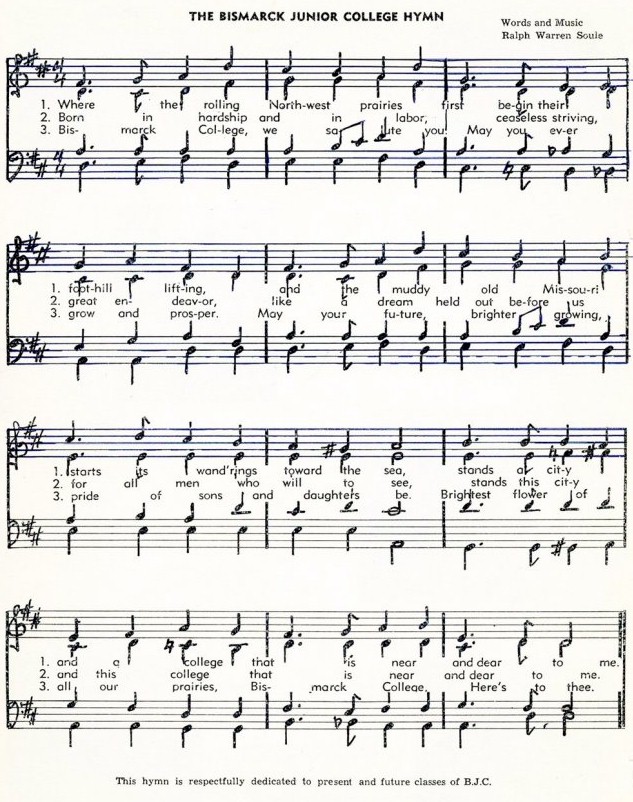 THE BISMARCK JUNIOR COLLEGE HYMN
Words and Music
Ralph Warren Soule
1. Where the rolling North-west prairies first be-gin their
2. Born in hardship and in labor, ceaseless striving,
3. Bis- marck Col-lege, we sa- lute you! May you ev-er
1. foot-hill lift-ing, and the muddy old Mis-sou-ri
2. great en- deav-or, like a dream held out be-fore us
3. grow and pros-per. May your fu-ture, brighter growing,
1. starts its wand'rings toward the sea, stands a cit-y
2. for all men who will to see, stands this cit-y
3. pride of sons and daughters be. Brightest flower of
1. and a college that is near and dear to me.
2. and this college that is near and dear to me.
3. all our prairies, Bis- marck College. Here's to thee.
This hymn is respectfully dedicated to present and future classes of B.J.C.